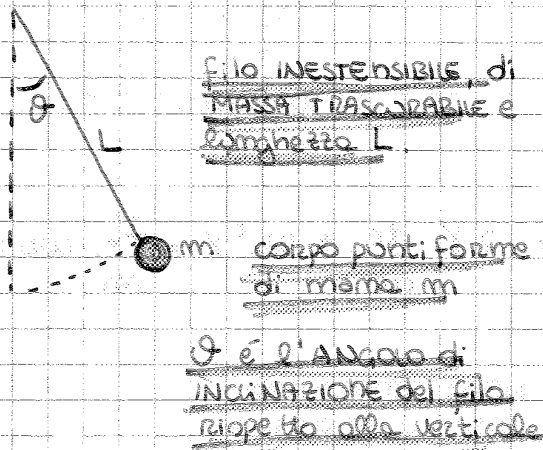 ϑ
L
filo INESTENSIBILE, di
MASSA TRASCURABILE e
lunghezza L.
m
corpo puntiforme
di massa m
ϑ é l'ANGOLO di
INCLINAZIONE del filo
rispetto alla verticale